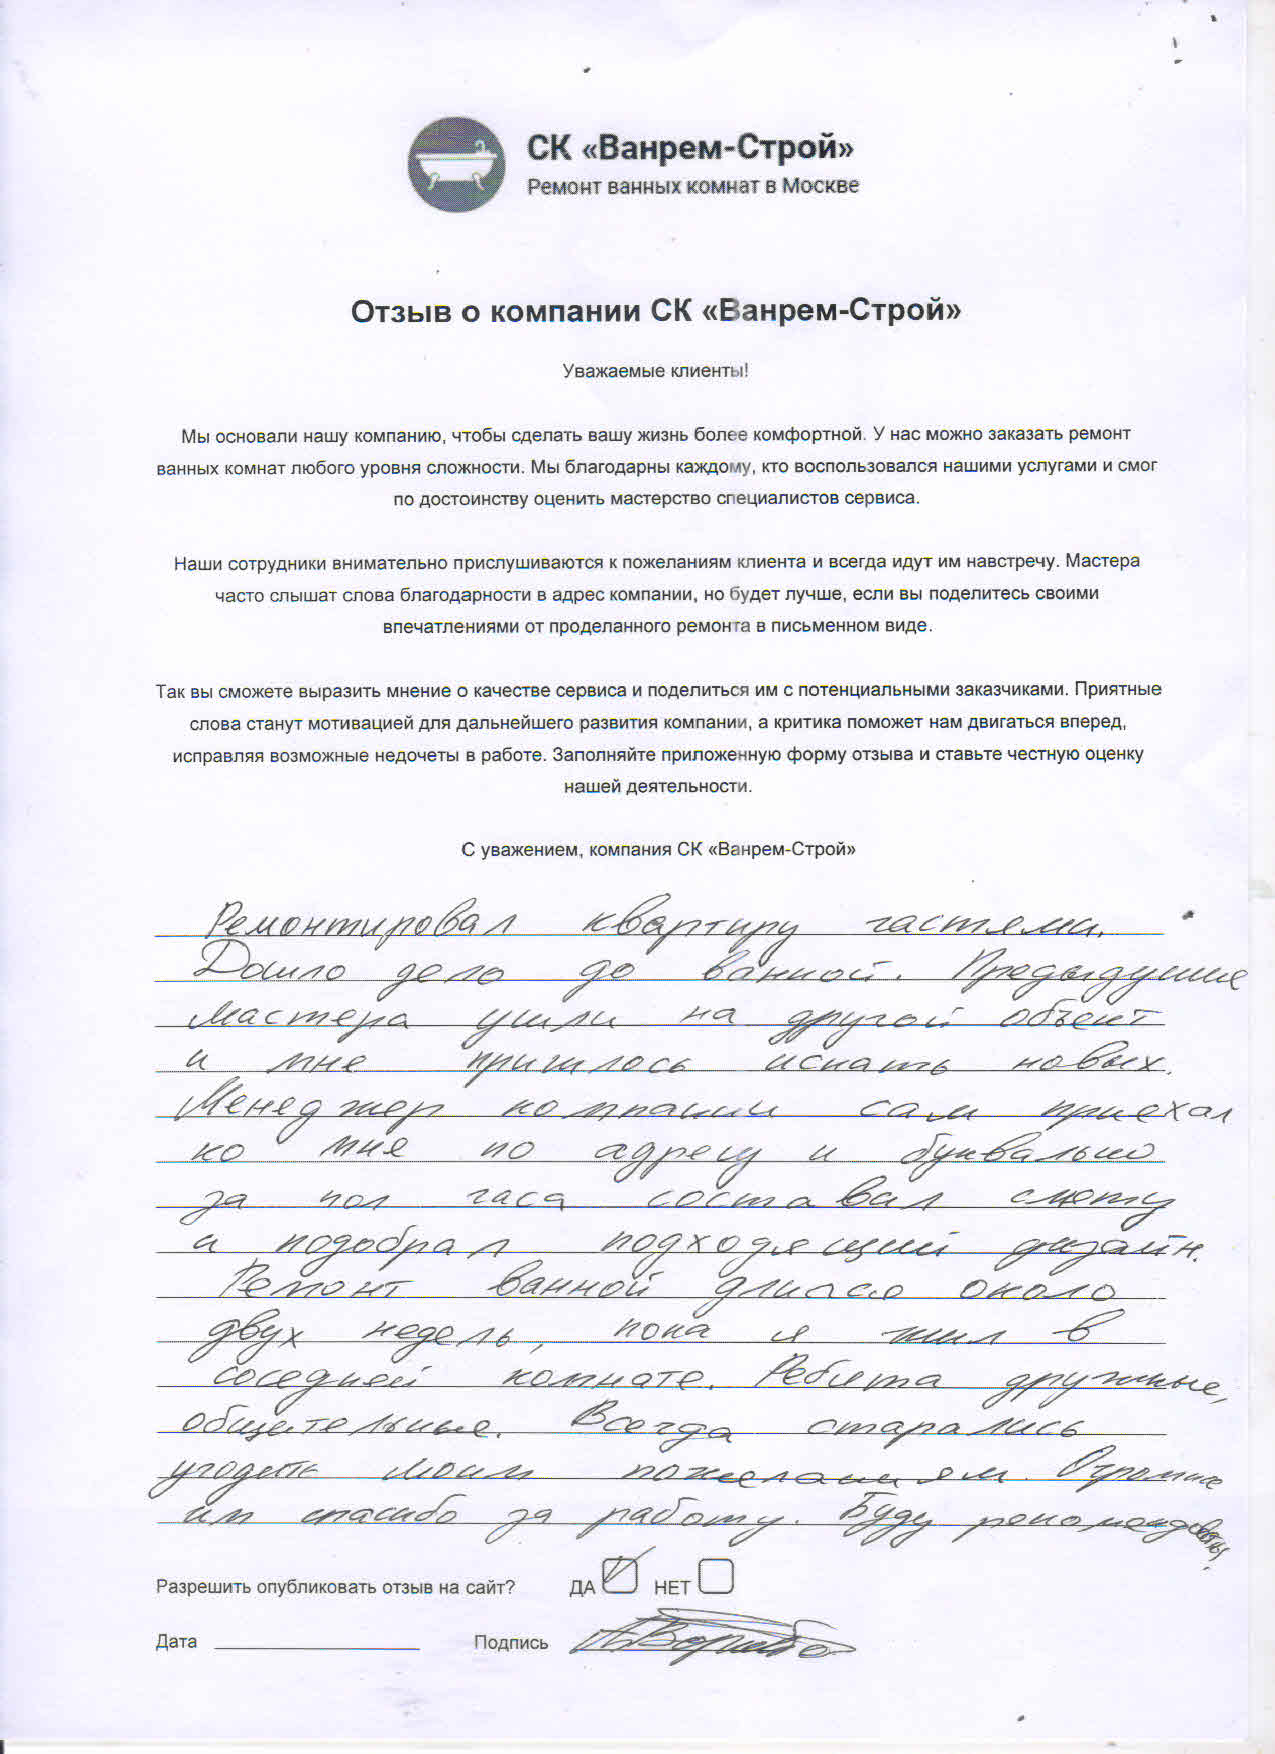 СК «Ванрем-Строй»
Ремонт ванных комнат в Москве
Отзыв о компании СК «Ванрем-Строй»
Уважаемые клиенты!
Мы основали нашу компанию, чтобы сделать вашу жизнь более комфортной. У нас можно заказать ремонт
ванных комнат любого уровня сложности. Мы благодарны каждому, кто воспользовался нашими услугами и смог
по достоинству оценить мастерство специалистов сервиса.
Наши сотрудники внимательно прислушиваются к пожеланиям клиента и всегда идут им навстречу. Мастера
часто слышат слова благодарности в адрес компании, но будет лучше, если вы поделитесь своими
впечатлениями от проделанного ремонта в письменном виде.
Так вы сможете выразить мнение о качестве сервиса и поделиться им с потенциальными заказчиками. Приятные
слова станут мотивацией для дальнейшего развития компании, а критика поможет нам двигаться вперед,
исправляя возможные недочеты в работе. Заполняйте приложенную форму отзыва и ставьте честную оценку
нашей деятельности.
С уважением, компания СК «Ванрем-Строй»
Ремонтировал квартиру частями.
Дошло дело до ванной. Предыдущие
мастера ушли на другой объект
и мне пришлось искать новых.
Менеджер компании сам приехал
ко мне по адресу и буквально
за пол часа составал смету
и подобрал подходящий дизайн.
Ремонт ванной длился около
двух недель, пока я жил в
соседней комнате. Ребята дружные,
общительные. Всегда старались
угодить моим пожеланиям. Огромное
им спасибо за работу. Буду рекомендовать!
Разрешить опубликовать отзыв на сайт? ДА НЕТ
Дата Подпись